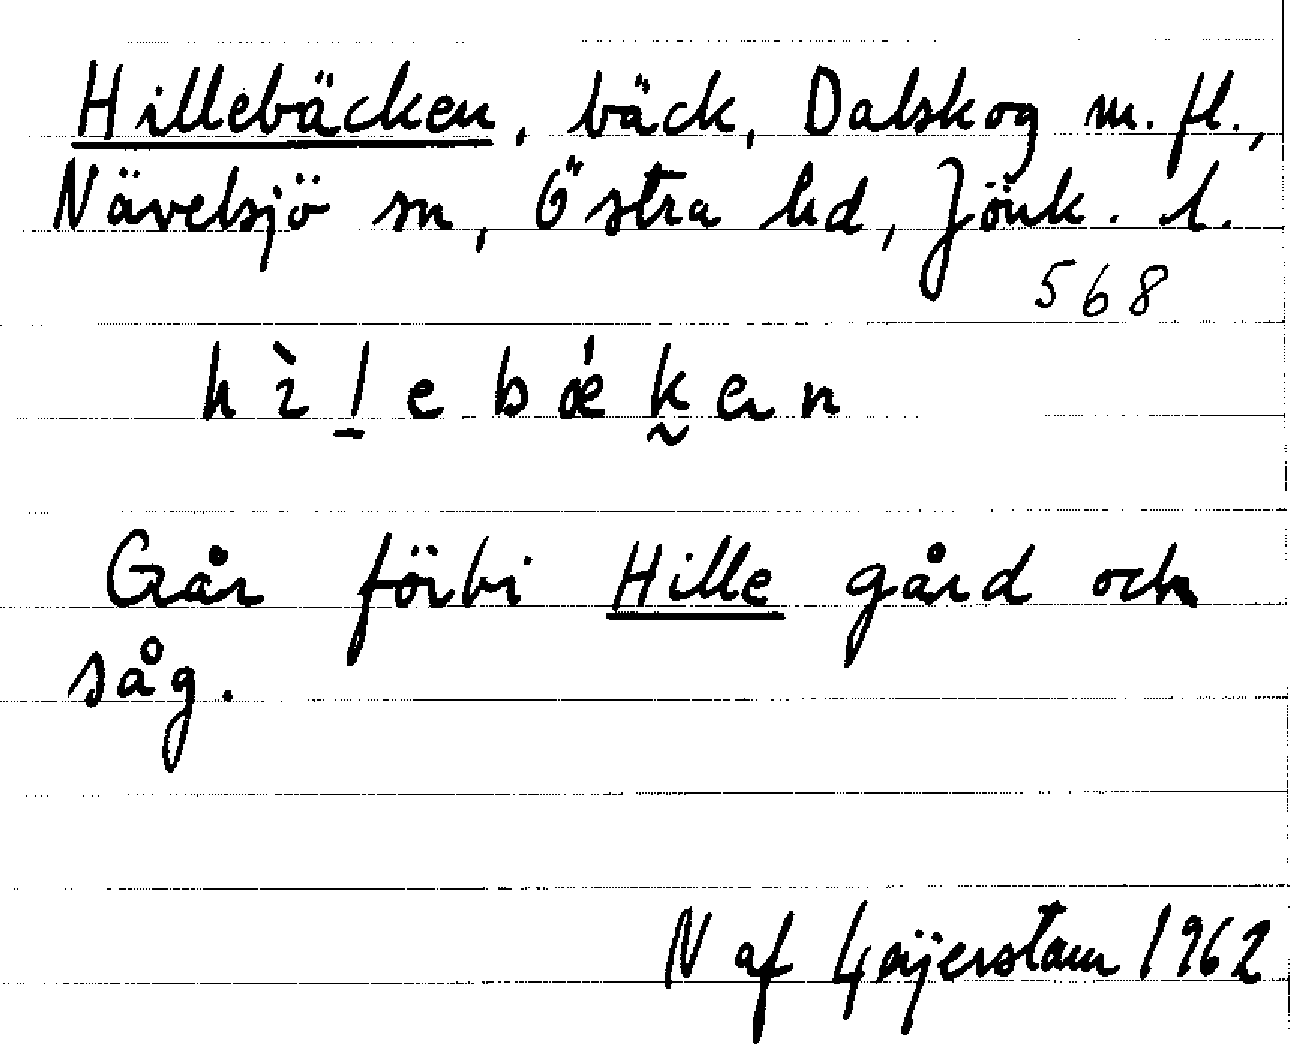 Hillebäcken, bäck, Dalskog m. fl.,
Nävelsjö sn, Östra hd, Jönk. l.
568
Går förbi Hille gård och
såg.
N af Geijerstam 1962